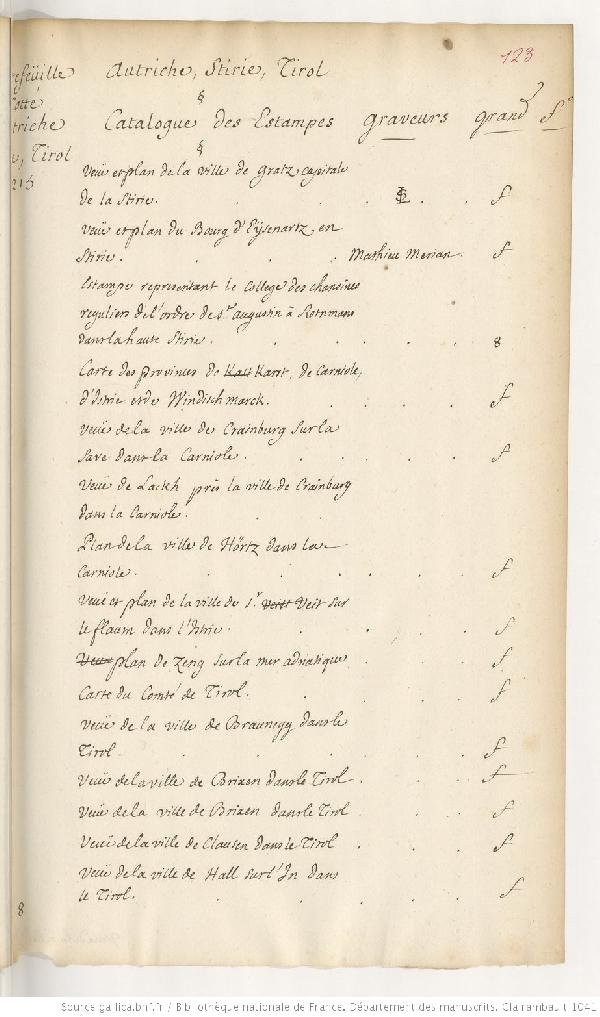 123
Autriche, Stirie, Tirol
§
Catalogue des Estampes graveurs grand f.
§
triche
Tirol
215
Veuë et plan de la ville de Gratz capitale
de la Stirie. f
Veuë et plan du Bourg d'Eysenartz en
Stirie. Mathieu Merian. f
Estampe representant le College des chanoines
reguliers de l'ordre de St. augustin à Rotnmans
dans la haute Stirie. 8
Carte des provinces de Karst Karnt, de Carniole,
d'Istrie et de Windisch marck. f
Veuë de la ville de Crainburg sur la
Save dans la Carniole. f
Veuë de Lackh près la ville de Crainburg
dans la Carniole.
Plan de la ville de Hörtz dans la
Carniole. f
Veuë et plan de la ville de St. Veitt Veit sur
le flaum dans l'Istrie. f
Veuë plan de Zeng sur la mer adriatique f
Carte du Comté de Tirol. f
Veuë de la ville de Braunegg dans le
Tirol f
Veuë de la ville de Brixen dans le Tirol. f
Veuë de la ville de Brixen dans le Tirol f
Veuë de la ville de Clausen dans le Tirol f
Veuë de la ville de Hall sur l'In dans
le Tirol. f
8
Source gallica.bnf.fr / Bibliothèque nationale de France. Département des manuscrits. Clairambault 1041